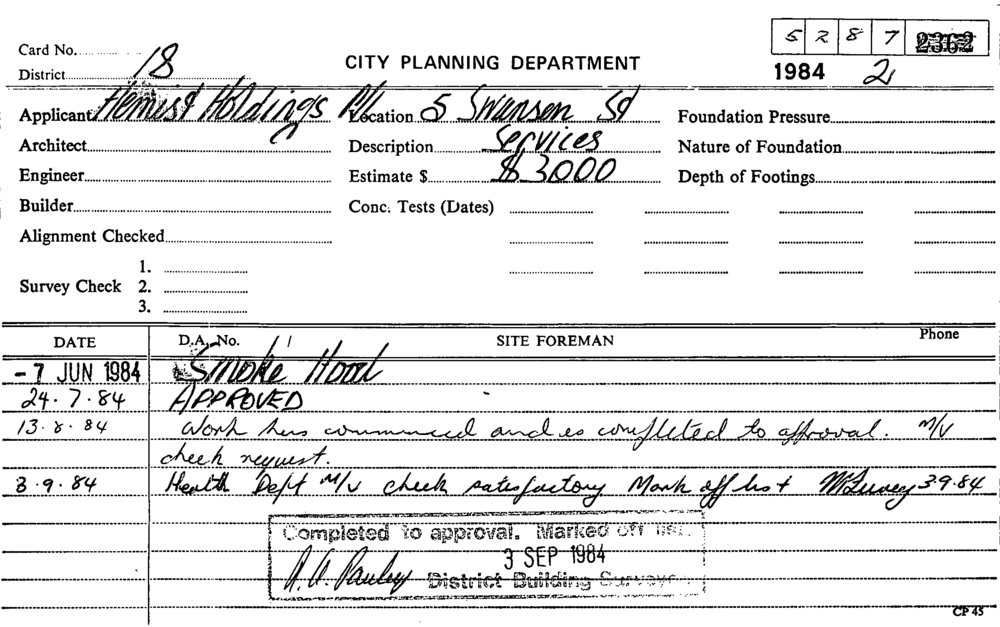 5 2 8 7 2362
Card No.
District 18
CITY PLANNING DEPARTMENT
1984 2
Applicant Hemist Holdings P/L Location 5 Swansen St Foundation Pressure
Architect Description Services Nature of Foundation
Engineer Estimate $ $ 3000 Depth of Footings
Builder Conc. Tests (Dates)
Alignment Checked
1.
Survey Check 2.
3.
DATE D.A. No. SITE FOREMAN Phone
- 7 JUN 1984 Smoke Hood
24.7.84 APPROVED
13.8.84 Work has commenced and is completed to approval. M/V
check request.
3.9.84 Health Dept M/V check satisfactory Mark off list 3.9.84
Completed to approval. Marked off list.
3 SEP 1984
District Building Surveyor
CP 45